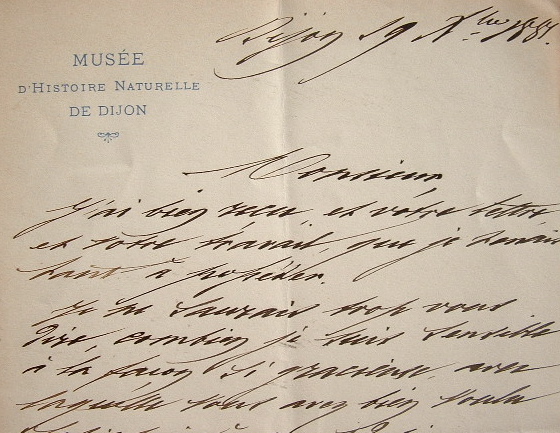 MUSÉE
D'HISTOIRE NATURELLE
DE DIJON
Dijon 19 Xbre
Monsieur,
J'ai bien reçu, et votre lettre
et votre travail, que je tenais
tant à posséder.
Je ne saurais trop vous
dire, combien je suis sensible
à la façon si gracieuse, avec
laquelle vous avez bien voulu